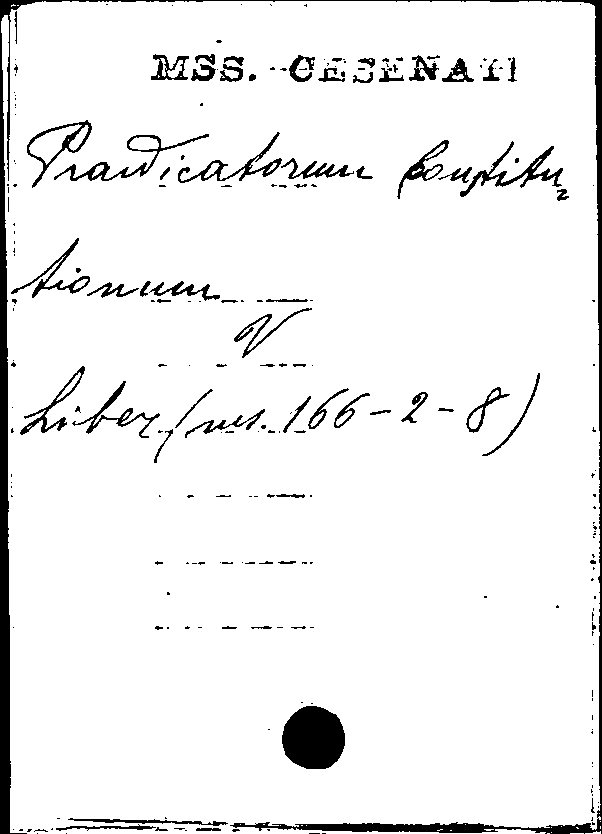 MSS. CESENATI
Praedicatorum Constitu=
tionum
V
Liber (ms. 166-2-8)